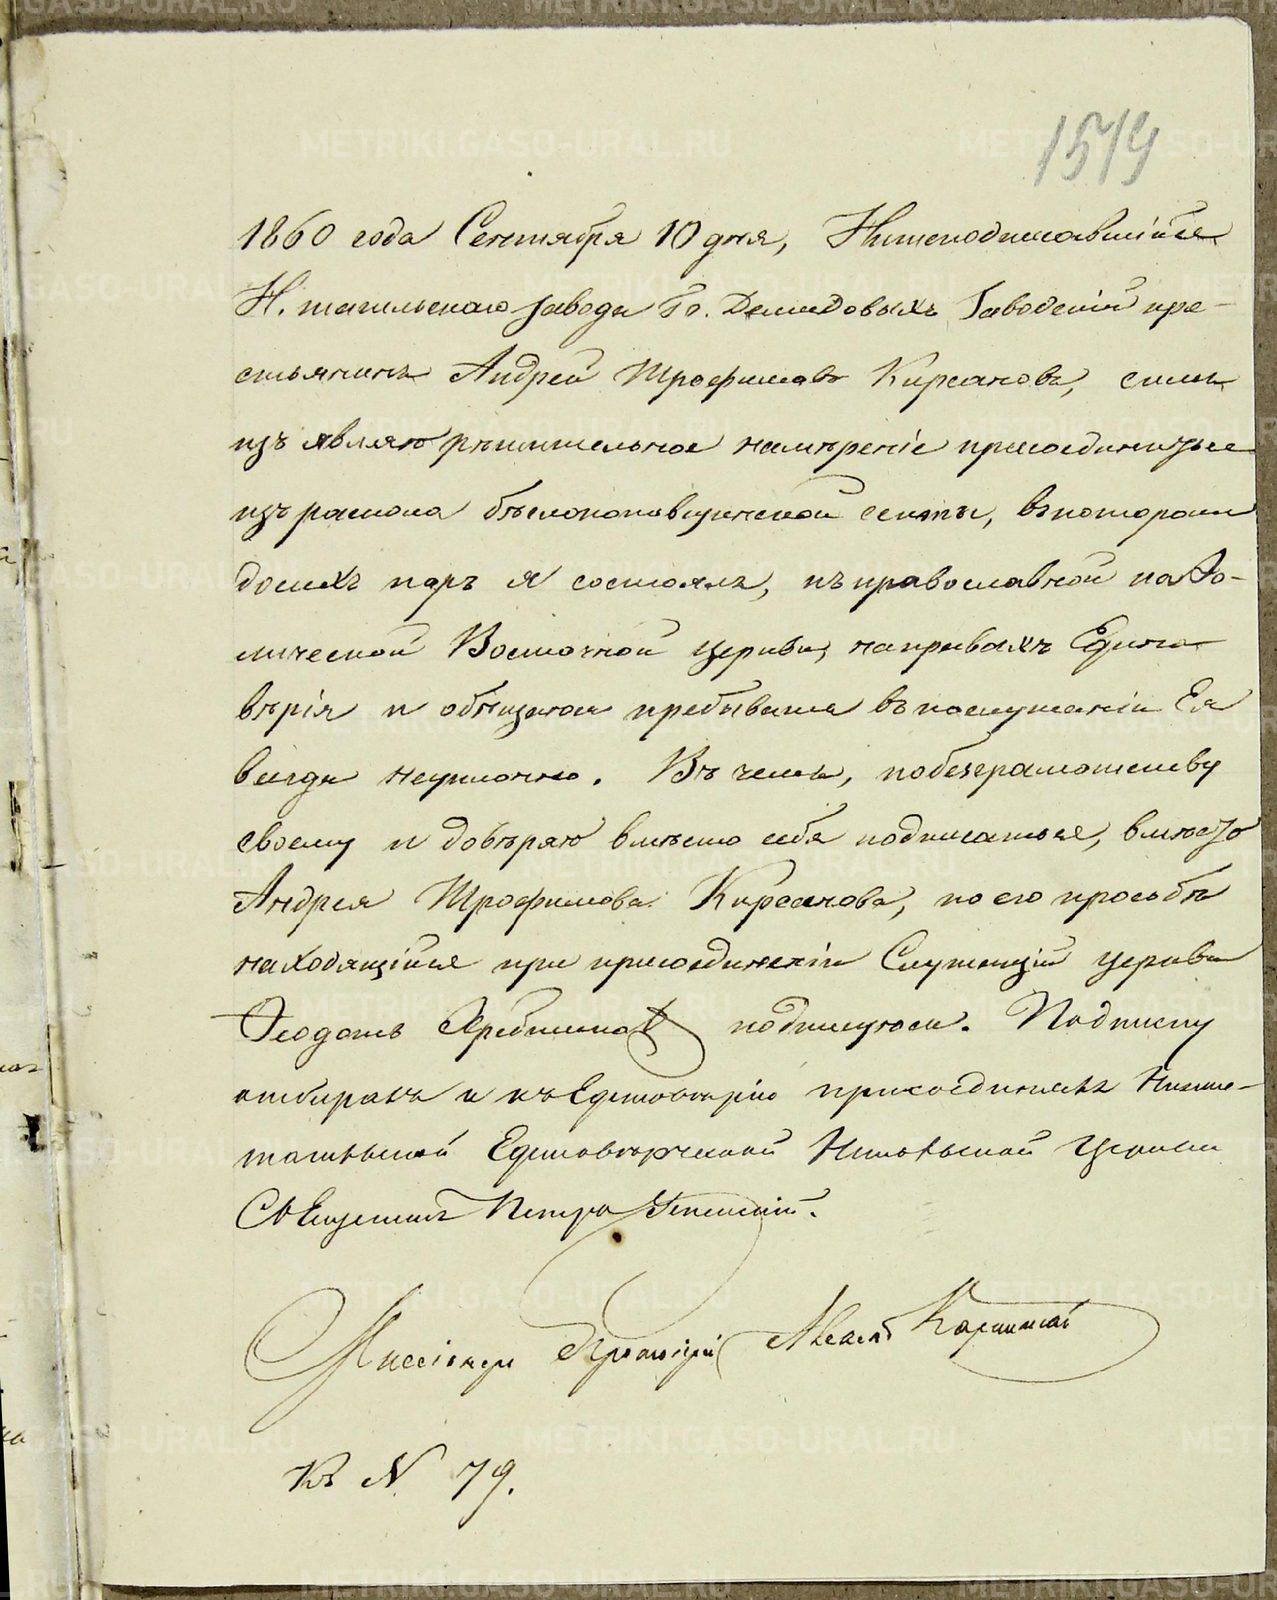 1519
1860 года Сентября 10 дня, Нижеподписавшiйся
Н. тагильскаго завода Гг. Демидовыхъ Заводскiй кре-
стьянинъ Андрей Трофимовъ Кирсановъ, симъ
изъявляю рѣшительное намѣренiе присоединиться
изъ раскола бѣглопоповщинской секты, въ которой
до сихъ поръ я состоялъ, къ православной каѳо-
лической Восточной церкви, на правахъ Едино
вѣрiя и обѣщаюсь пребывать въ послушанiи Ея
всегда неуклонно. Въ чемъ, по безграмотству
своему и довѣряю вмѣсто себя подписаться, вмѣсто
Андрея Трофимова Кирсанова, по его прозьбѣ
находящiйся при присоединенiи Служащiй церкви
Ѳеодотъ подпишуюсь. Подписку
отбиралъ и къ Единовѣрiю присоединялъ Нижне-
тагильской Единовѣрческой Никольской Церкви
Священникъ Петръ Успенскiй.
Миссiонеръ Протоiерей
Къ N 79.